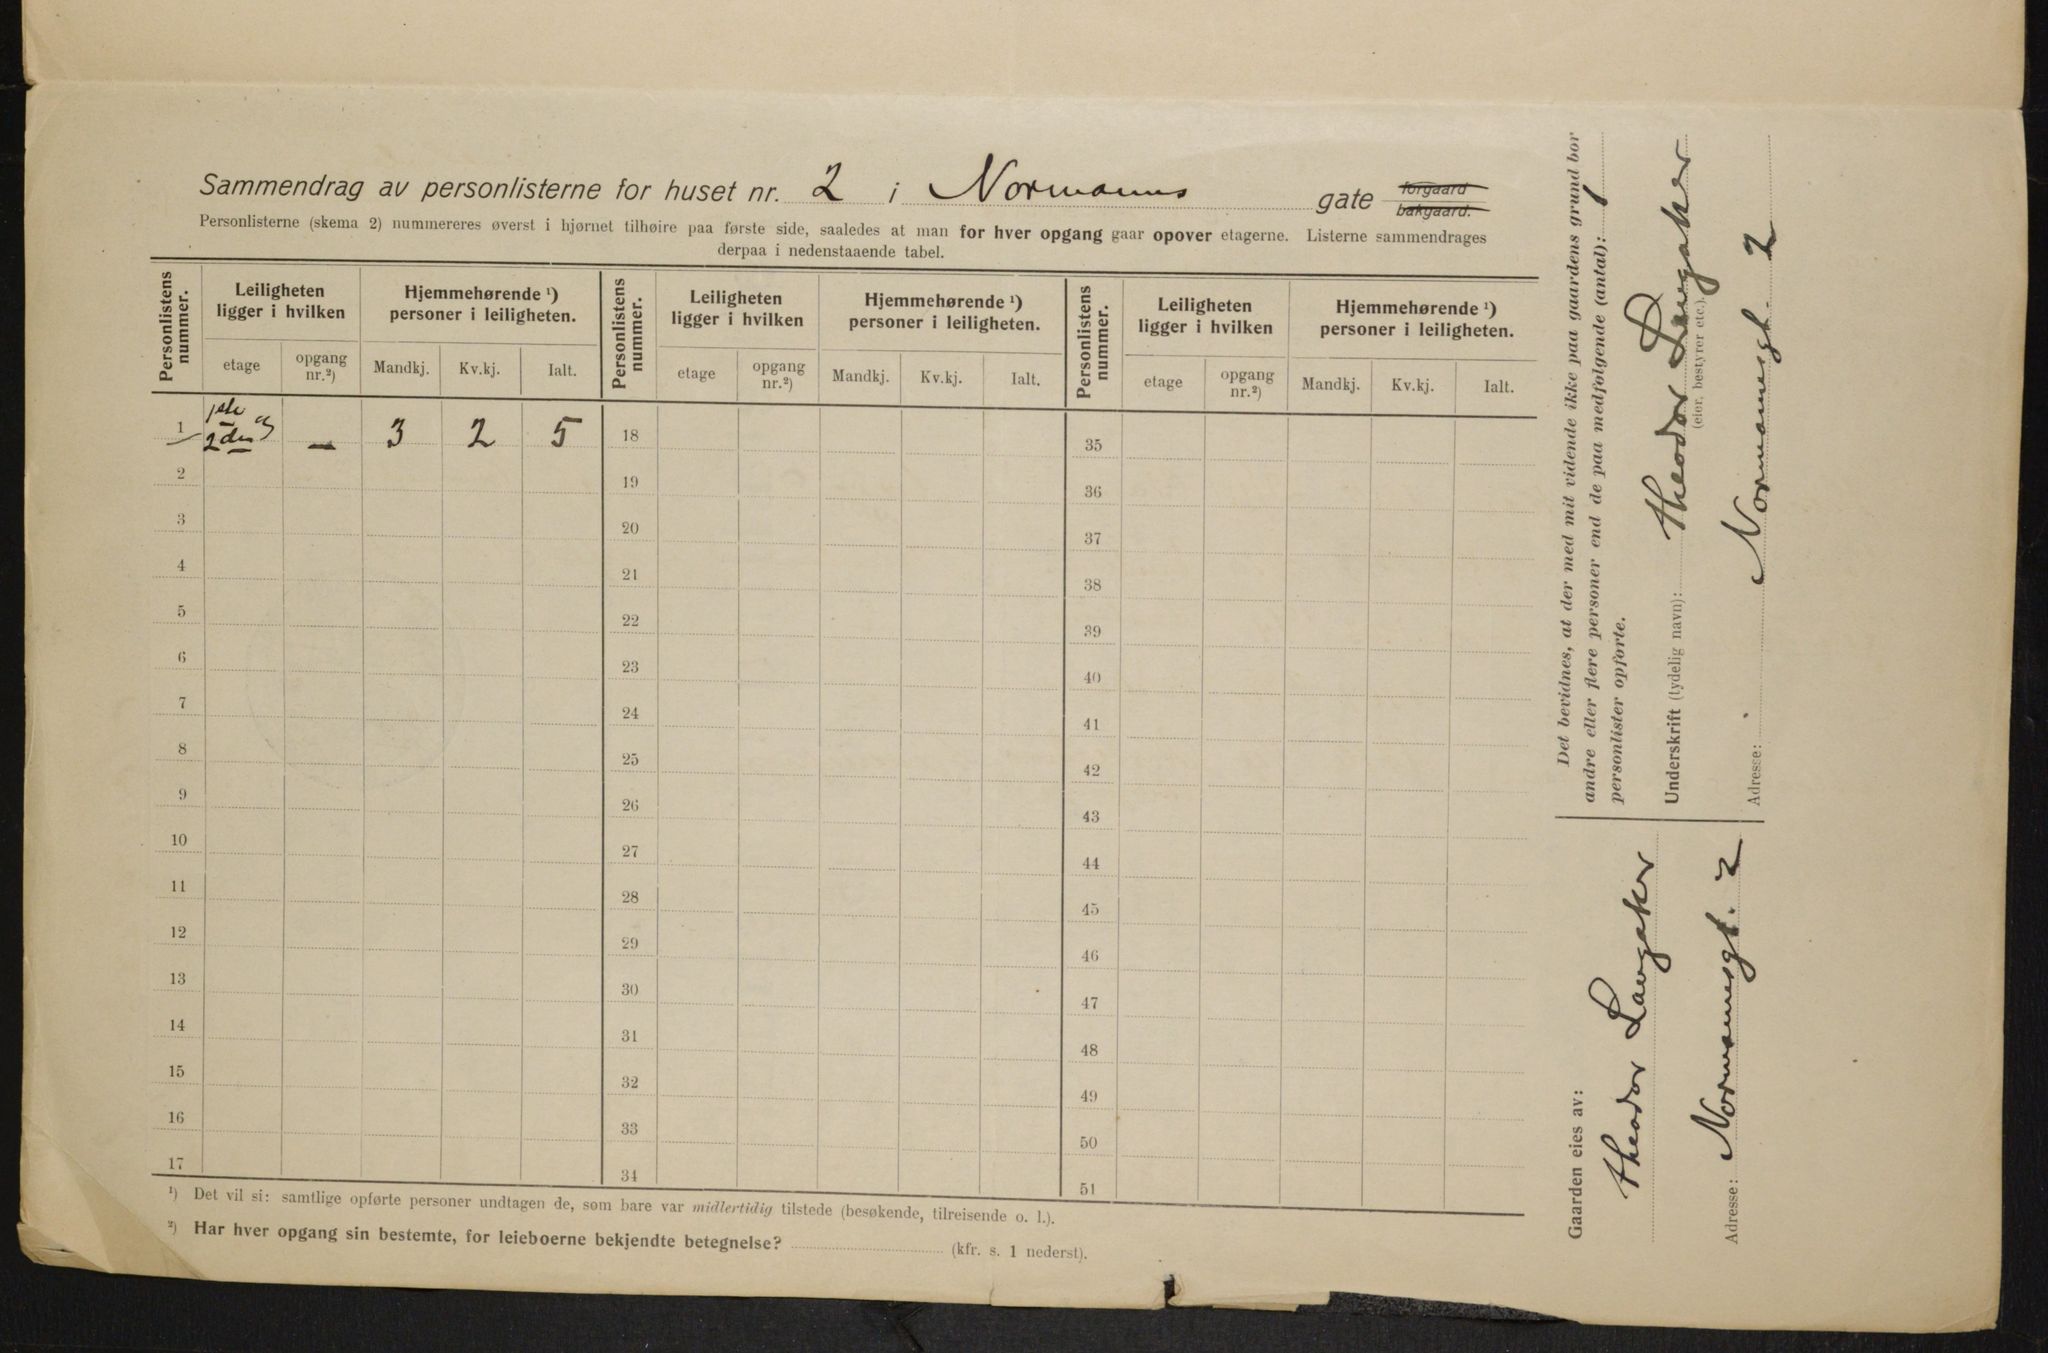 Sammendrag av personlisterne for huset nr. 2 i Normanns gate forgaard bakgaard.
Personlisterne (skema 2) nummereres øverst i hjørnet tilhøire paa første side, saaledes at man for hver opgang gaar opover etagerne. Listerne sammendrages
derpaa i nedenstaaende tabel.
Personlistens nummer. Leiligheten ligger i hvilken Hjemmehørende ¹) personer i leiligheten. Personlistens nummer. Leiligheten ligger i hvilken Hjemmehørende ¹) personer i leiligheten. Personlistens nummer. Leiligheten ligger i hvilken Hjemmehørende ¹) personer i leiligheten.
etage opgang nr.²) Mandkj. Kv.kj. Ialt. etage opgang nr.²) Mandkj. Kv.kj. Ialt. etage opgang nr.²) Mandkj. Kv.kj. Ialt.
1 1ste og 2den — 3 2 5 18 35
2 19 36
3 20 37
4 21 38
5 22 39
6 23 40
7 24 41
8 25 42
9 26 43
10 27 44
11 28 45
12 29 46
13 30 47
14 31 48
15 32 49
16 33 50
17 34 51
¹) Det vil si: samtlige opførte personer undtagen de, som bare var midlertidig tilstede (besøkende, tilreisende o. l.).
²) Har hver opgang sin bestemte, for leieboerne bekjendte betegnelse? (kfr. s. 1 nederst).
Det bevidnes, at der med mit vidende ikke paa gaardens grund bor
andre eller flere personer end de paa medfølgende (antal): 1
personlister opførte.
Underskrift (tydelig navn): Theodor Langaker
(eier, bestyrer etc.).
Adresse: Normannsgt. 2
Gaarden eies av:
Theodor Langaker
Adresse: Normannsgt. 2